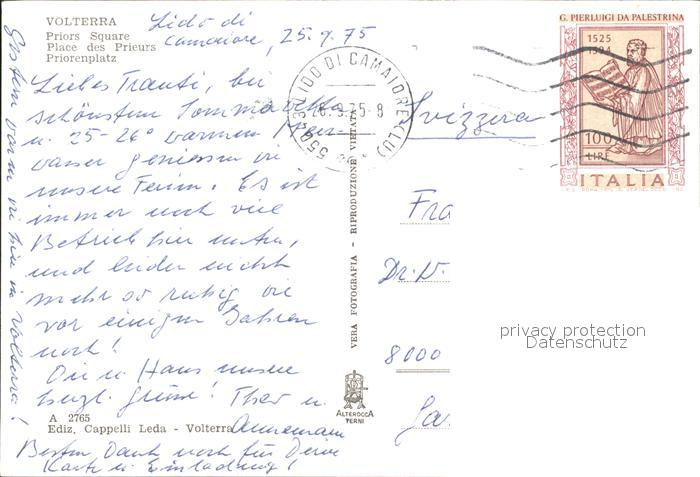 VOLTERRA
Priors Square
Place des Prieurs
Priorenplatz
Lido di
Camaiore, 25.9.75
Liebes Trauti, bei
schönstem Sommerwetter
u. 25-26° warmem Meer-
wasser geniessen wir
unsere Ferien. Es ist
immer noch viel
Betrieb hier unten,
und leider nicht
mehr so ruhig wie
vor einigen Jahren
noch!
Dir u. Hans unsere
herzl. Grüsse! Theo u.
Annemarie
Besten Dank noch für Deine
Karte u. Einladung!
Gestern waren wir hier in Volterra!
A 2765
Ediz. Cappelli Leda - Volterra
VERA FOTOGRAFIA - RIPRODUZIONE VIETATA
ALTEROCCA
TERNI
55043 LIDO DI CAMAIORE (LU)
26.9.75-8
G. PIERLUIGI DA PALESTRINA
1525
1594
100
LIRE
ITALIA
Svizzera
Fra
Dr. W.
8000
privacy protection
Datenschutz